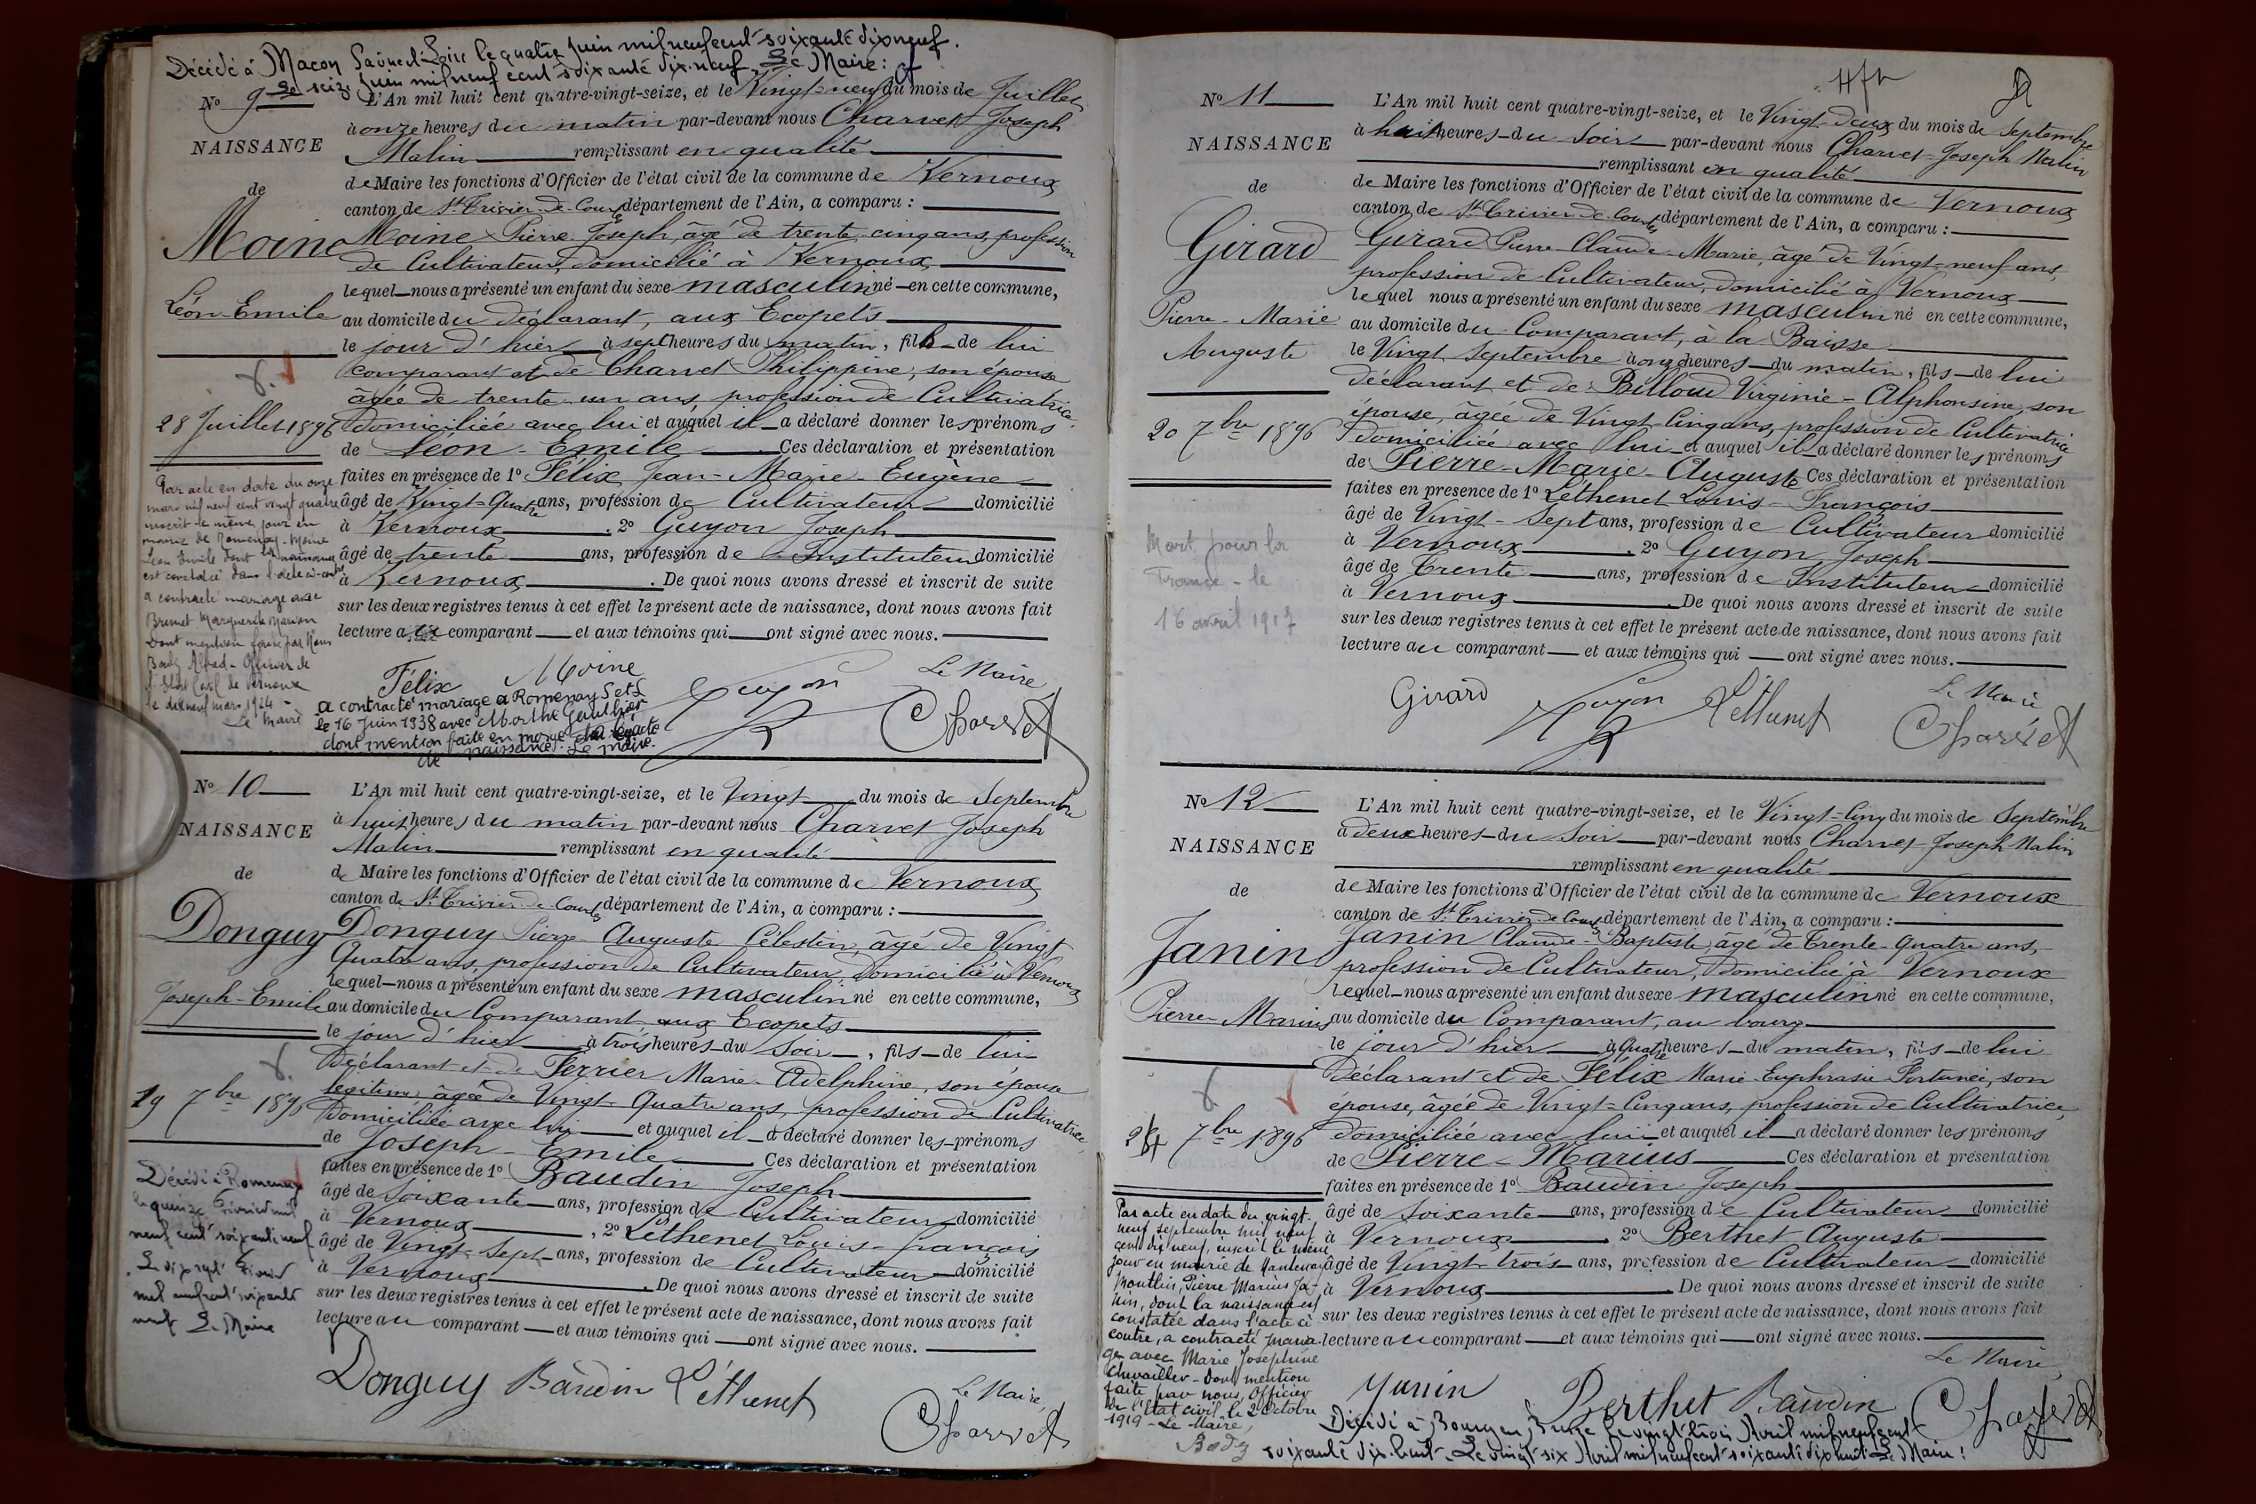 Décédé à Macon Saône et Loire le quatre juin mil neuf cent soixante dix neuf.
Le seize juin mil neuf cent soixante dix-neuf. Le Maire:
No 9
NAISSANCE
de
Moine
Léon-Emile
28 Juillet 1896
Par acte en date du onze
mars mil neuf cent vingt quatre
inscrit le même jour en
mairie de Romenay - Moine
Léon Emile dont la naissance
est constatée dans l'acte ci-contre
a contracté mariage avec
Brunet Marguerite Marian
Dont mention faite par Nous
Body Alfred - Officier de
l'Etat Civil de Vernoux
le dix neuf mars 1924 -
Le Maire
L'An mil huit cent quatre-vingt-seize, et le Vingt-neuf du mois de Juillet
à onze heures du matin par-devant nous Charvet Joseph
Malin remplissant en qualité
de Maire les fonctions d'Officier de l'état civil de la commune de Vernoux
canton de St Trivier-de-Courtes département de l'Ain, a comparu :
Moine Pierre-Joseph, âgé de trente-cinq ans, profession
de Cultivateur, domicilié à Vernoux
lequel nous a présenté un enfant du sexe masculin né en cette commune,
au domicile du déclarant, aux Ecopets
le jour d'hier à sept heures du matin, fils de lui
comparant et de Charvet Philippine, son épouse
âgée de trente-un ans, profession de Cultivatrice,
domiciliée avec lui et auquel il a déclaré donner les prénoms
de Léon-Emile Ces déclaration et présentation
faites en présence de 1o Félix Jean-Marie-Eugène
âgé de Vingt-Quatre ans, profession de Cultivateur domicilié
à Vernoux . 2o Guyon Joseph
âgé de trente ans, profession de Instituteur domicilié
à Vernoux . De quoi nous avons dressé et inscrit de suite
sur les deux registres tenus à cet effet le présent acte de naissance, dont nous avons fait
lecture au comparant et aux témoins qui ont signé avec nous.
Félix Moine Guyon Le Maire
Charvet
a contracté mariage à Romenay S et L
le 16 Juin 1938 avec Marthe Gauthier
dont mention faite en marge de l'acte
de naissance. Le maire.
No 10
NAISSANCE
de
Donguy
Joseph-Emile
19 7bre 1896
Décédé à Romenay
le quinze Février mil
neuf cent soixante neuf
Le dix sept Février
mil neuf cent soixante
neuf Le Maire
L'An mil huit cent quatre-vingt-seize, et le Vingt du mois de Septembre
à huit heures du matin par-devant nous Charvet Joseph
Malin remplissant en qualité
de Maire les fonctions d'Officier de l'état civil de la commune de Vernoux
canton de St Trivier-de-Courtes département de l'Ain, a comparu :
Donguy Pierre-Auguste Célestin, âgé de Vingt
Quatre ans, profession de Cultivateur, domicilié à Vernoux
lequel nous a présenté un enfant du sexe masculin né en cette commune,
au domicile du Comparant aux Ecopets
le jour d'hier à trois heures du Soir , fils de lui
Déclarant et de Ferrier Marie-Adelphine, son épouse
légitime, âgée de Vingt-Quatre ans, profession de Cultivatrice,
Domiciliée avec lui et auquel il a déclaré donner les prénoms
de Joseph-Emile Ces déclaration et présentation
faites en présence de 1o Baudin Joseph
âgé de soixante ans, profession de Cultivateur domicilié
à Vernoux , 2o Léthenet Louis-François
âgé de Vingt-Sept ans, profession de Cultivateur domicilié
à Vernoux . De quoi nous avons dressé et inscrit de suite
sur les deux registres tenus à cet effet le présent acte de naissance, dont nous avons fait
lecture au comparant et aux témoins qui ont signé avec nous.
Donguy Baudin Léthenet Le Maire,
Charvet
No 11
NAISSANCE
de
Girard
Pierre-Marie
Auguste
20 7bre 1896
Mort pour la
France - le
16 avril 1917
L'An mil huit cent quatre-vingt-seize, et le Vingt-Deux du mois de Septembre
à huit heures du Soir par-devant nous Charvet Joseph Malin
remplissant en qualité
de Maire les fonctions d'Officier de l'état civil de la commune de Vernoux
canton de St Trivier-de-Courtes département de l'Ain, a comparu :
Girard Pierre-Claude-Marie, âgé de Vingt-neuf ans,
profession de Cultivateur, domicilié à Vernoux
lequel nous a présenté un enfant du sexe masculin né en cette commune,
au domicile du Comparant, à la Baisse
le Vingt Septembre à onze heures du matin, fils de lui
déclarant et de Billoud Virginie-Alphonsine, son
épouse, âgée de Vingt-Cinq ans, profession de Cultivatrice
domiciliée avec lui et auquel il a déclaré donner les prénoms
de Pierre-Marie-Auguste Ces déclaration et présentation
faites en présence de 1o Léthenet Louis-François
âgé de Vingt-Sept ans, profession de Cultivateur domicilié
à Vernoux . 2o Guyon Joseph
âgé de Trente ans, profession de Instituteur domicilié
à Vernoux . De quoi nous avons dressé et inscrit de suite
sur les deux registres tenus à cet effet le présent acte de naissance, dont nous avons fait
lecture au comparant et aux témoins qui ont signé avec nous.
Girard Guyon Léthenet Le Maire
Charvet
No 12
NAISSANCE
de
Janin
Pierre-Marius
24 7bre 1896
Par acte en date du vingt-
neuf septembre mil neuf
cent dix neuf, inscrit le même
jour en mairie de Mantenay
Montlin, Pierre Marius Ja-
nin, dont la naissance est
constatée dans l'acte ci
contre, a contracté maria-
ge avec Marie Joséphine
Chevaillier - Dont mention
faite par nous, Officier
de l'Etat civil, le 2 Octobre
1919 - Le Maire,
Body
L'An mil huit cent quatre-vingt-seize, et le Vingt-Cinq du mois de Septembre
à deux heures du Soir par-devant nous Charvet Joseph Malin
remplissant en qualité
de Maire les fonctions d'Officier de l'état civil de la commune de Vernoux
canton de St Trivier-de-Courtes département de l'Ain, a comparu :
Janin Claude-Baptiste, âgé de Trente-Quatre ans,
profession de Cultivateur, Domicilié à Vernoux
lequel nous a présenté un enfant du sexe masculin né en cette commune,
au domicile du Comparant, au bourg
le jour d'hier à Quatre heures du matin, fils de lui
Déclarant et de Félix Marie Euphrasie Fortunée, son
épouse, âgée de Vingt-Cinq ans, profession de Cultivatrice,
domiciliée avec lui et auquel il a déclaré donner les prénoms
de Pierre-Marius Ces déclaration et présentation
faites en présence de 1o Baudin Joseph
âgé de soixante ans, profession de Cultivateur domicilié
à Vernoux 2o Berthet Auguste
âgé de Vingt-trois ans, profession de Cultivateur domicilié
à Vernoux . De quoi nous avons dressé et inscrit de suite
sur les deux registres tenus à cet effet le présent acte de naissance, dont nous avons fait
lecture au comparant et aux témoins qui ont signé avec nous.
Le Maire,
Janin Berthet Baudin Charvet
Décédé à Bourg en Bresse le vingt trois Avril mil neuf cent
soixante dix-huit. Le vingt-six Avril mil neuf cent soixante dix huit Le Maire :